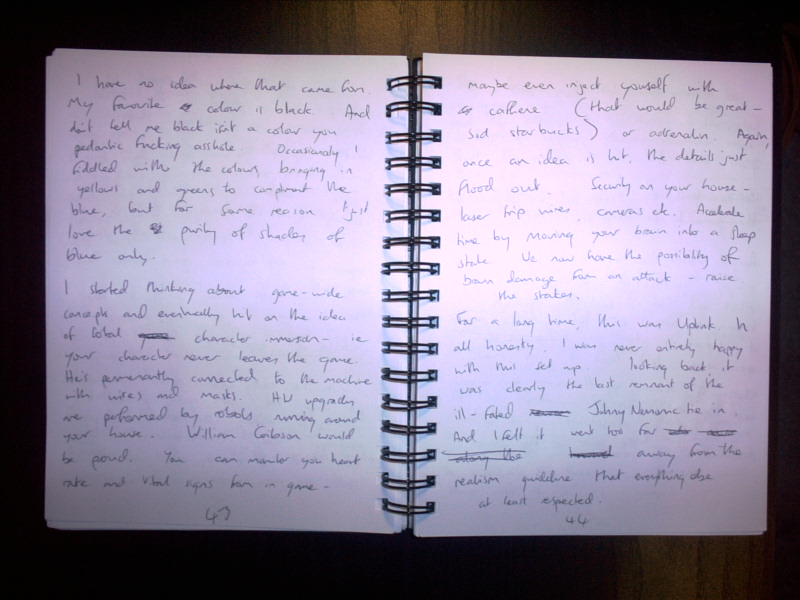 I have no idea where that came from.
My favourite colour is black. And
don't tell me black isn't a colour you
pedantic fucking asshole. Occasionaly I
fiddled with the colours, bringing in
yellows and greens to compliment the
blue, but for some reason I just
love the purity of shades of
blue only.
I started thinking about game-wide
concepts and eventually hit on the idea
of total character immersion - ie
your character never leaves the game.
He's permenantly connected to the machine
with wires and masks. H/W upgrades
are performed by robots running around
your house. William Gibson would
be proud. You can monitor you heart
rate and vital signs from in game -
43
maybe even inject yourself with
caffiene (that would be great -
sod starbucks) or adrenalin. Again,
once an idea is hit, the details just
flood out. Security on your house -
laser trip wires, cameras etc. Accelerate
time by moving your brain into a sleep
state. We now have the possibility of
brain damage from an attack - raise
the stakes.
For a long time, this was Uplink. In
all honesty, I was never entirely happy
with this set up. looking back it
was clearly the last remnant of the
ill-fated Johny Nemonic tie in.
And I felt it went too far
away from the
realism guideline that everything else
at least respected.
44